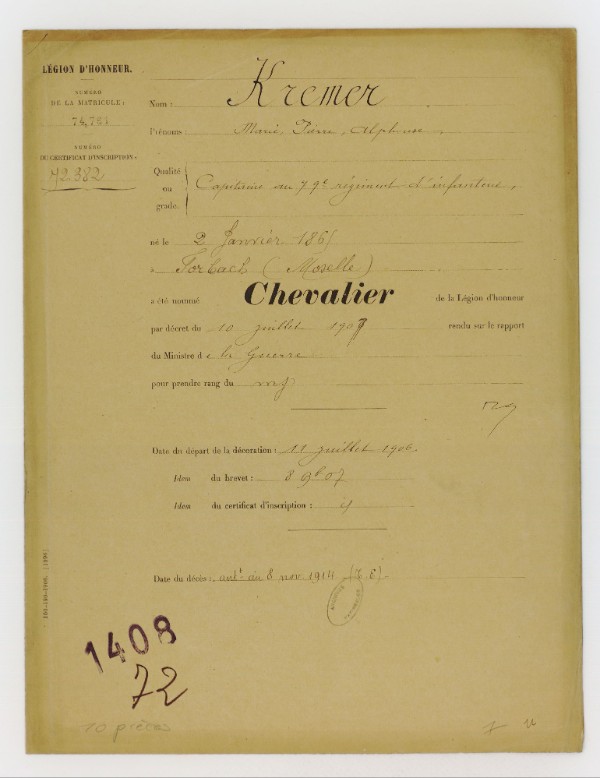 LÉGION D'HONNEUR.
NUMÉRO
DE LA MATRICULE :
74,751
NUMÉRO
DU CERTIFICAT D'INSCRIPTION :
72382
Nom : Kremer
Prénoms : Marie, Pierre, Alphonse,
Qualité
ou
grade.
Capitaine au 79e régiment d'infanterie,
né le 2 Janvier 186
à Forbach (Moselle)
a été nommé Chevalier de la Légion d'honneur
par décret du 10 juillet 190 rendu sur le rapport
du Ministre de la Guerre
pour prendre rang du
Date du départ de la décoration : 11 juillet 1906
Idem du brevet : 8 9b 07
Idem du certificat d'inscription :
Date du décès : antt au 8 nov. 1914 (T.E).
1408
72
10 pièces